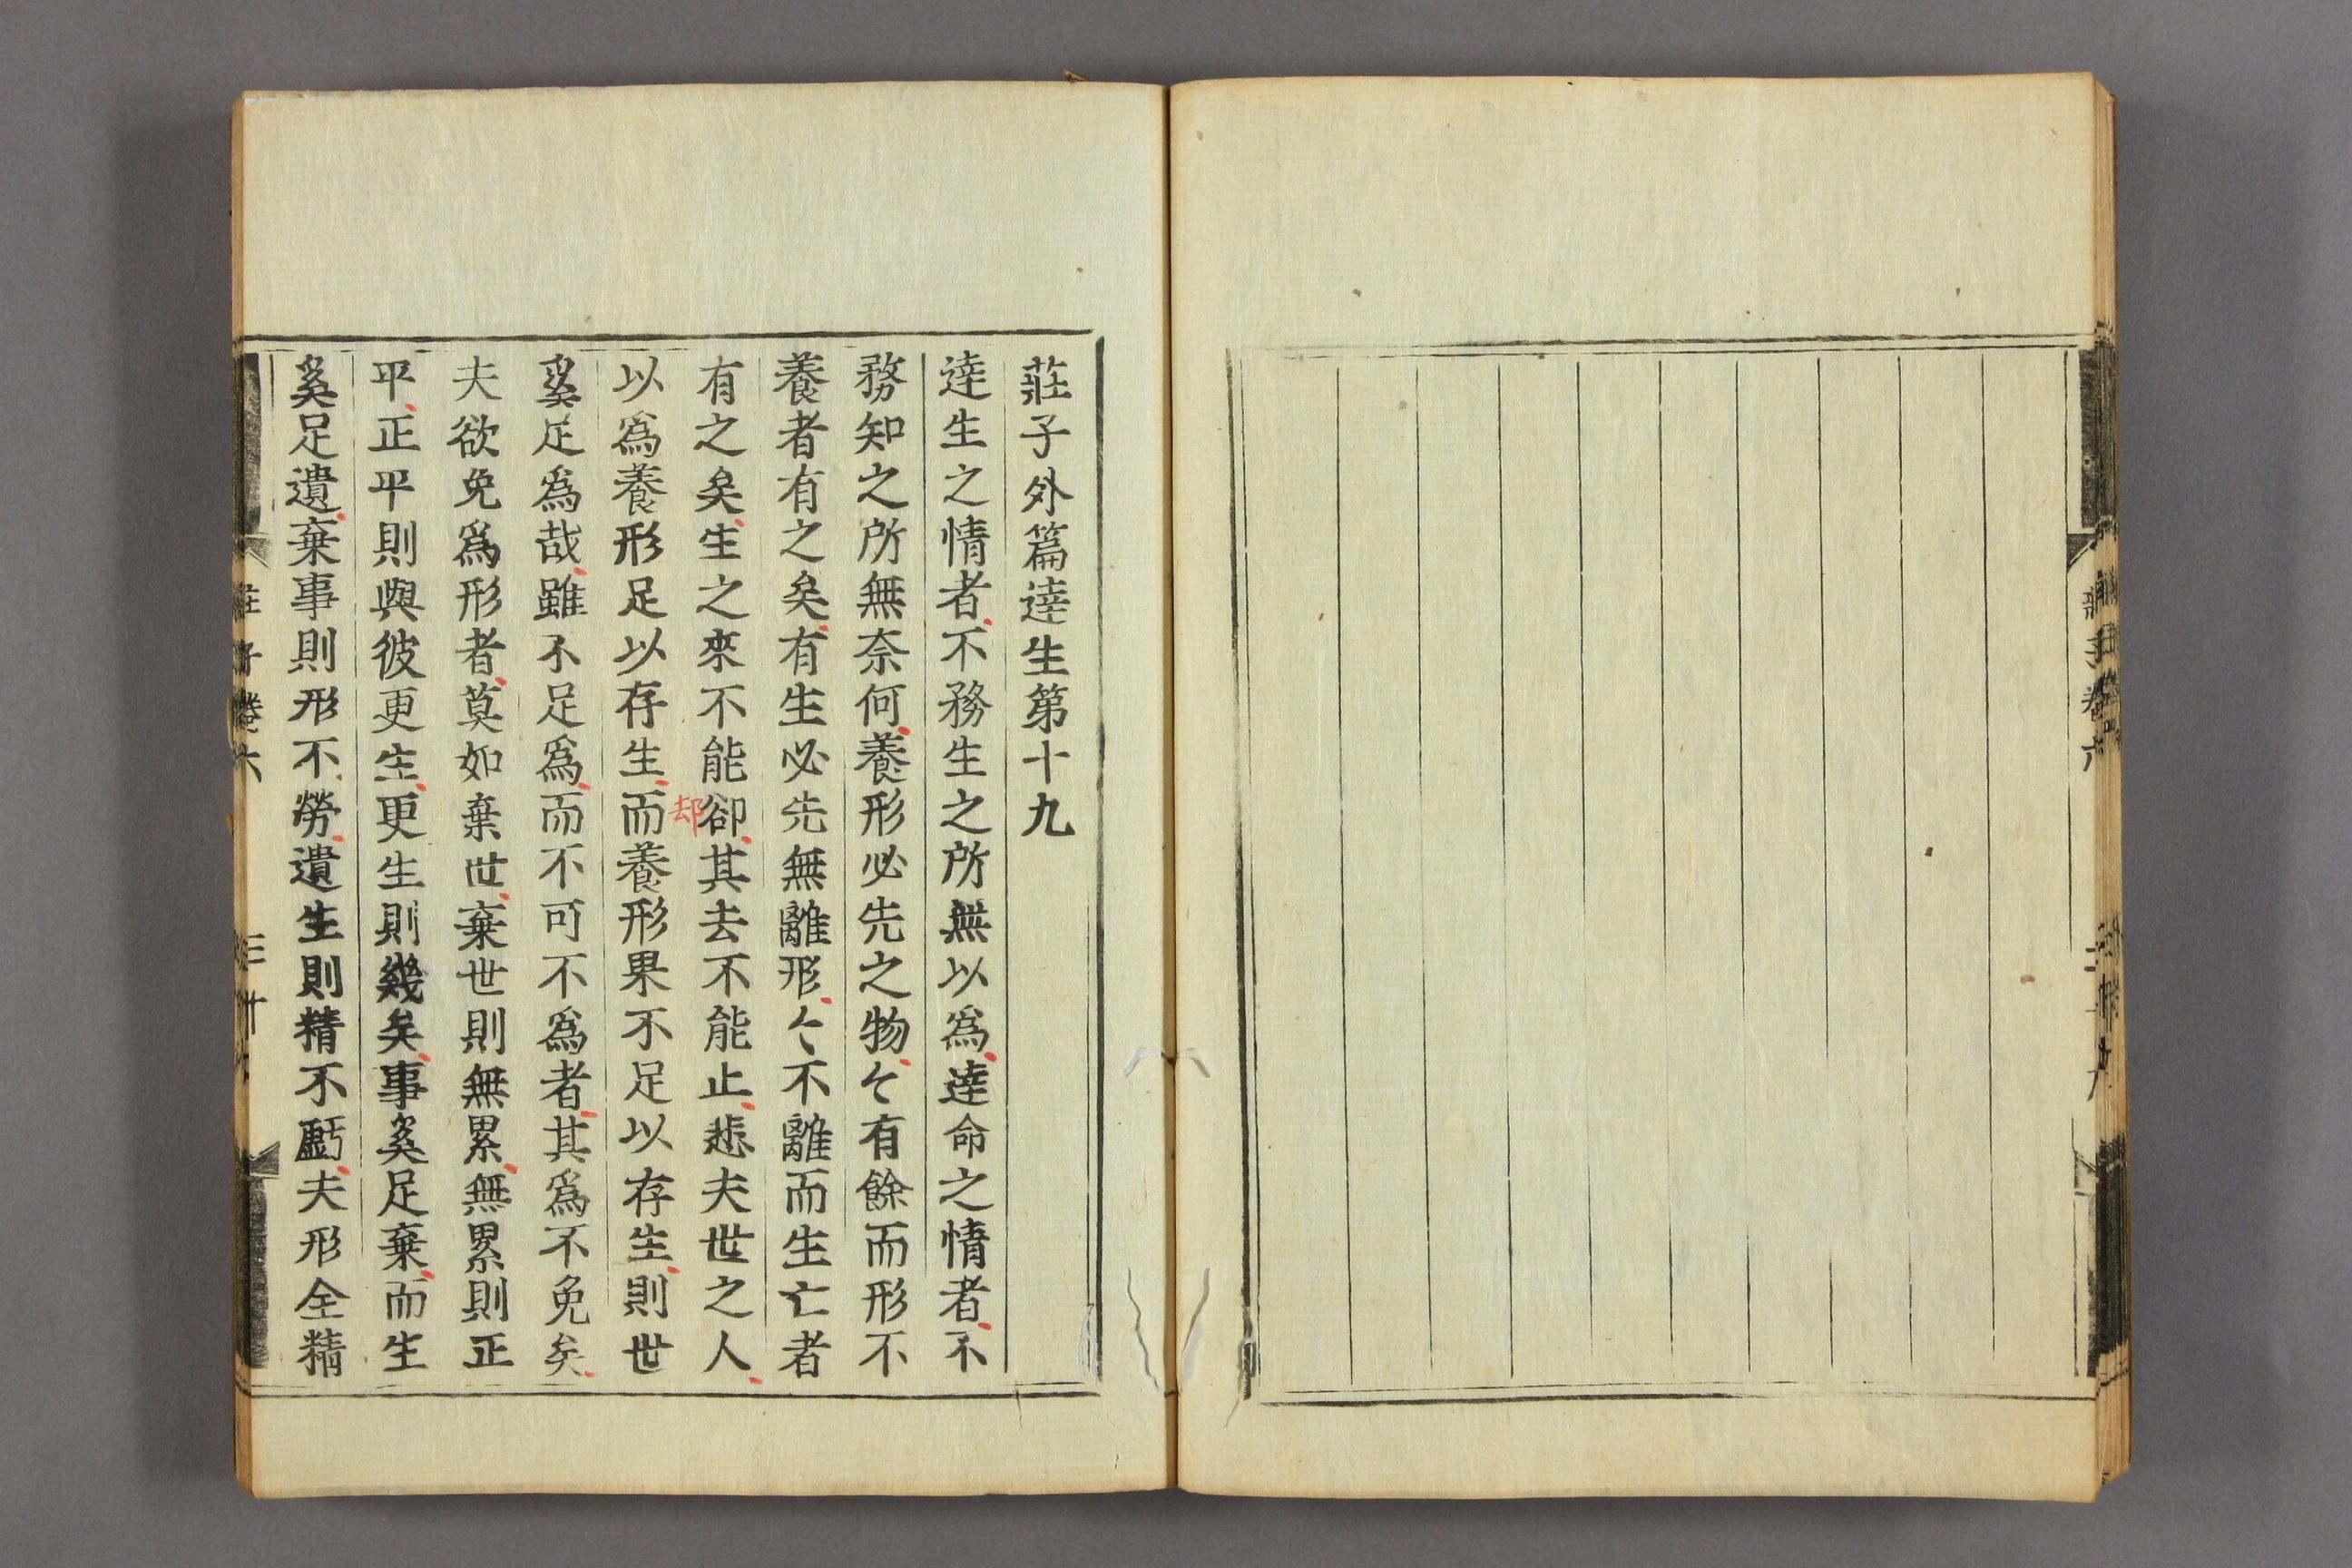 莊子外篇達生第十九
達生之情者不務生之所無以爲達命之情者不
務知之所無奈何養形必先之物々有餘而形不
養者有之矣有生必先無離形々不離而生亡者
有之矣生之來不能卻其去不能止悲夫世之人
却
以爲養形足以存生而養形果不足以存生則世
奚足爲哉雖不足爲而不可不爲者其爲不免矣
夫欲免爲形者莫如棄世棄世則無累無累則正
平正平則與彼更生更生則幾矣事奚足棄而生
奚足遺棄事則形不勞遺生則精不虧夫形全精
莊子卷六